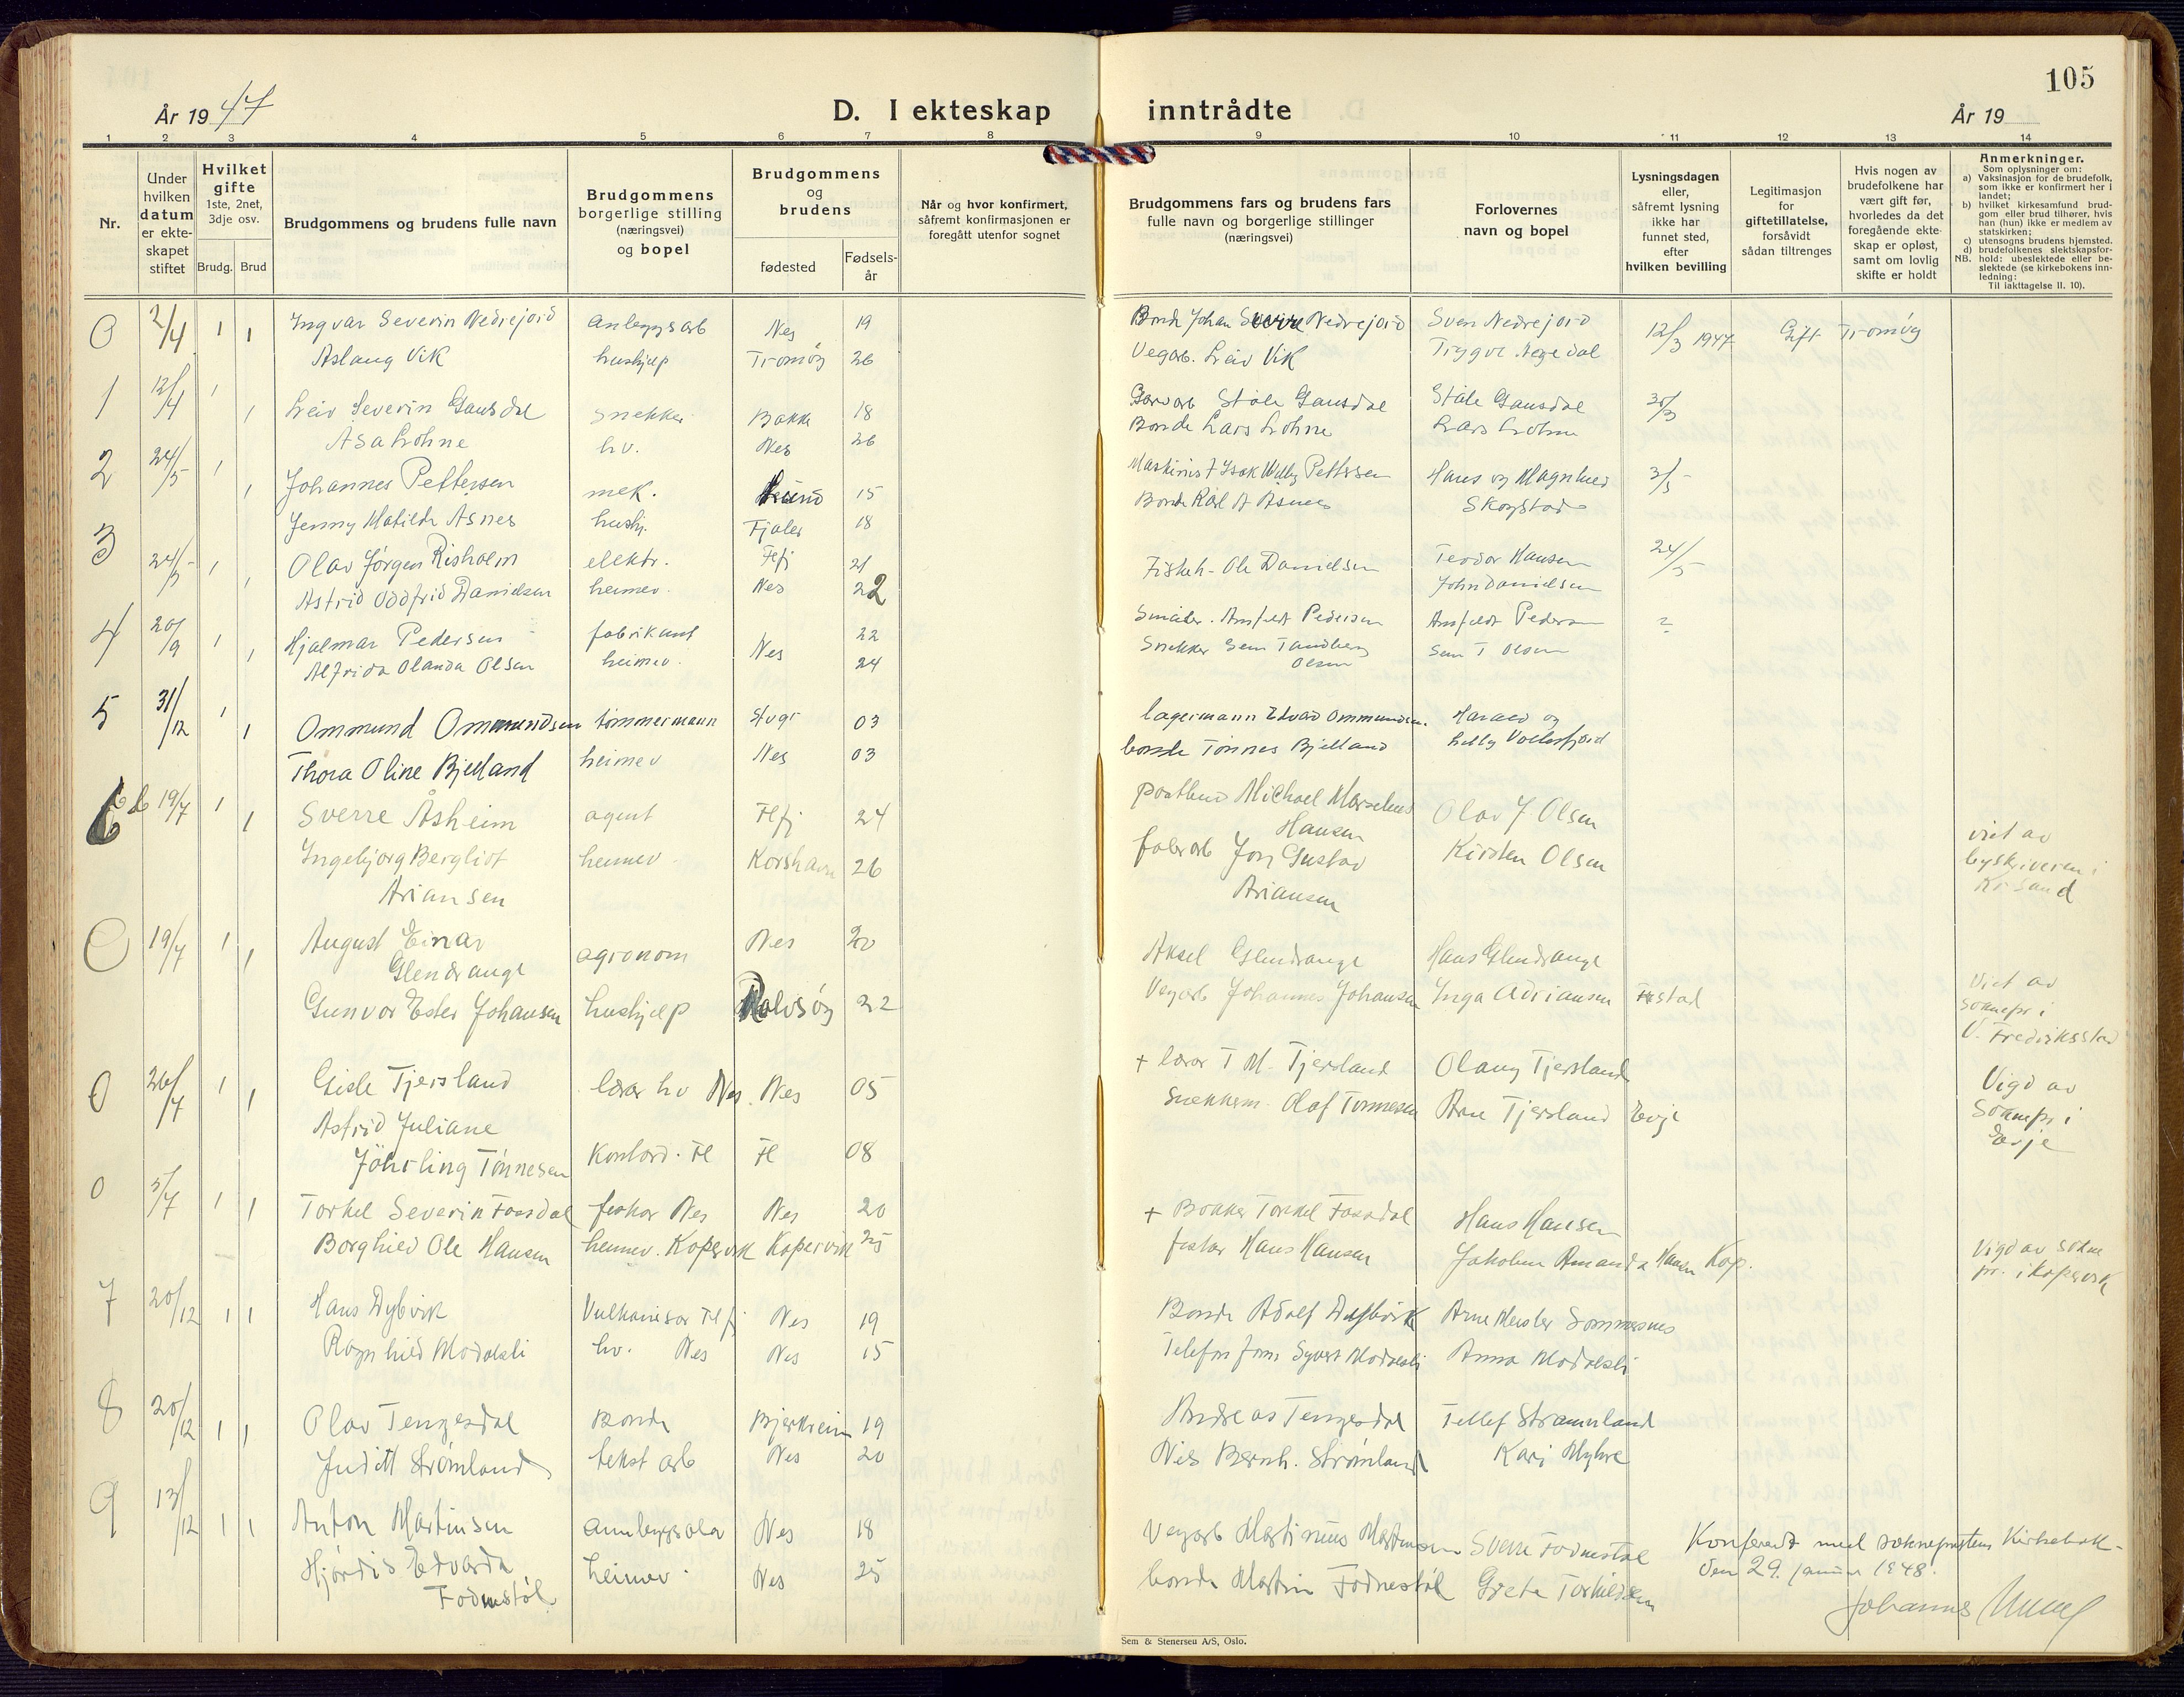 105
År 1947
D. I ekteskap inntrådte
År 19
1 2 3 4 5 6 7 8 9 10 11 12 13 14
Nr.
Under hvilken datum er ekte-skapet stiftet
Hvilket gifte 1ste, 2net, 3dje osv.
Brudg. Brud
Brudgommens og brudens fulle navn
Brudgommens borgerlige stilling (næringsvei) og bopel
Brudgommens og brudens
fødested
Fødsels-år
Når og hvor konfirmert, såfremt konfirmasjonen er foregått utenfor sognet
Brudgommens fars og brudens fars fulle navn og borgerlige stillinger (næringsvei)
Forlovernes navn og bopel
Lysningsdagen eller, såfremt lysning ikke har funnet sted, efter hvilken bevilling
Legitimasjon for giftetillatelse, forsåvidt sådan tiltrenges
Hvis nogen av brudefolkene har vært gift før, hvorledes da det foregående ekte-skap er opløst, samt om lovlig skifte er holdt
Anmerkninger.
Som oplysninger om:
a) Vaksinasjon for de brudefolk, som ikke er konfirmert her i landet;
b) hvilket kirkesamfund brud-gom eller brud tilhører, hvis han (hun) ikke er medlem av statskirken;
c) utensogns brudens hjemsted.
d) brudefolkenes slektskapsfor-hold: ubeslektede eller be-slektede (se kirkebokens inn-ledning:
NB.
Til iakttagelse II. 10).
0 2/4 1 1 Ingvar Severin Nedrejord anleggsarb Nes 19 Bonde Johan Sverre Nedrejord Sven Nedrejord 12/3 1947 Gift Tromøy
Aslaug Vik hushjelp Tromøy 26 Vegarb. Leiv Vik Tryggve
1 12/4 1 1 Leiv Severin Gausdal snekker Bakke 18 Garvarb Ståle Gausdal Ståle Gausdal 30/3
Åsa Lohne hv. Nes 26 Bonde Lars Lohne Lars Lohne
2 24/5 1 1 Johannes Pettersen mek. 15 Maskinist Isak Pettersen Hans og Magnhild 3/5
Jenny Matilde Åsnes hushj. Fjaler 18 Bonde Karl A Åsnes Skogstad
3 24/5 1 1 Olav Jørgen Risholm elektr. Flfj 21 Teodor Hansen 24/5
Astrid Oddfrid Danielsen heimev. Nes 22 Fiskeh. Ole Danielsen John Danielsen
4 20/9 1 1 Hjalmar Pedersen fabrikant Nes 22 Småbr. Arnfeldt Pedersen Arnfeldt Pedersen ?
Alfrida Olanda Olsen heimev. 24 Snekker Sem Tandberg Olsen Sem T Olsen
5 31/12 1 1 Ommund Ommundsen tømmermann 03 lagermann Edvard Ommundsen. Harald og
Thora Oline Bjelland heimev Nes 03 bonde Tønnes Bjelland Vollesfjord
6 19/7 1 1 Sverre Åsheim agent Flfj 24 postbud Michael Hansen Olav J Olsen
Ingebjørg Bergliot Ariansen heimev. Korshavn 26 fabrarb Gustav Ariansen Kirsten Olsen viet av byskriveren i Kr.sand
0 19/7 1 1 August Einar Glendrange agronom Nes 20 Aksel Glendrange Hans Glendrange
Gunvor Ester Johansen hushjelp Rolvsøy 22 Vegarb Johannes Johansen Inga Adriansen Fstad Viet av soknepr i V. Fredrikstad
0 26/7 1 1 Gisle Tjersland lærer hv Nes. Nes 05 + lærer T M. Tjersland Olaug Tjersland
Astrid Juliane Tønnesen Kontord. Fl Fl 08 Snekkerm. Olaf Tønnesen Arne Tjersland Evje Vigd av Soknepr i Evje
0 5/7 1 1 Torkel Severin Fossdal fisker Nes Nes 20 + Bonker Torkel Fossdal Hans Hansen
Borghild Ole Hansen heimev. Kopervik Kopervik 25 fisker Hans Hansen Jakobine Amanda Hansen Kop. Vigd av sokne pr. i Kopervik
7 20/12 1 1 Hans Dybvik Vulkanisør Flfj Nes 19 Bonde Adolf Dybvik Arne Sommesnes
Ragnhild Modalsli hv. Nes Nes 15 Telefonform Syvert Modalsli Anna Modalsli
8 20/12 1 1 Olav Tengesdal Bonde Bjerkreim 19 Andreas Tengesdal Tellef Strømland
Judith Strømland tekst arb Nes 20 Nils Bernh. Strømland Kari Myhre
9 13/12 1 1 Anton Martinsen anleggsarb Nes 18 Vegarb Martinius Martinsen Sverre Fodnestøl
Hjørdis Edvarda Fodnestøl heimev. Nes 25 bonde Martin Fodnestøl Grete Torkildsen
Konferert med sokneprestens Kirkebok
den 29. januar 1948.
Johannes
Sem & Stenersen A/S, Oslo.